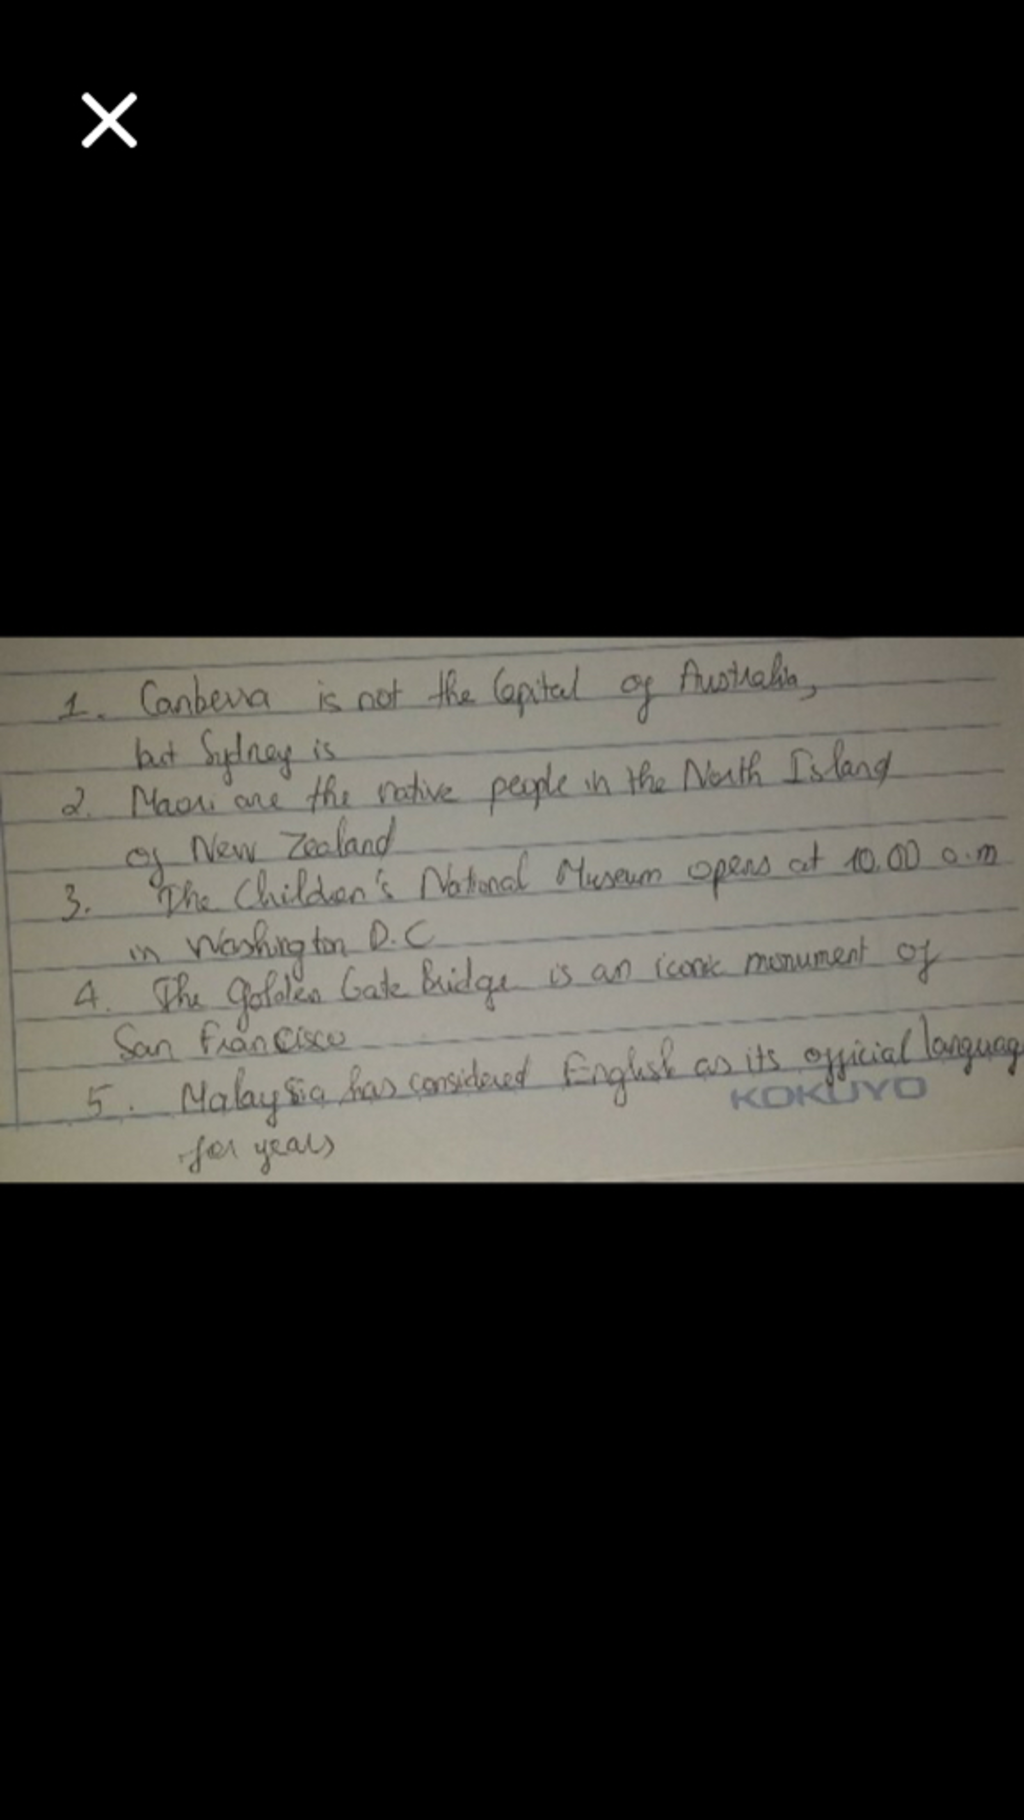 1. Canberra is not the Capital of Australia,
but Sydney is
2. Maori are the native people in the North Island
of New Zealand
3. The Children's National Museum opens at 10.00 a.m
in Washington D.C
4. The Golden Gate Bridge is an iconic monument of
San Francisco
5. Malaysia has considered English as its official languag
KOKUYO
for years